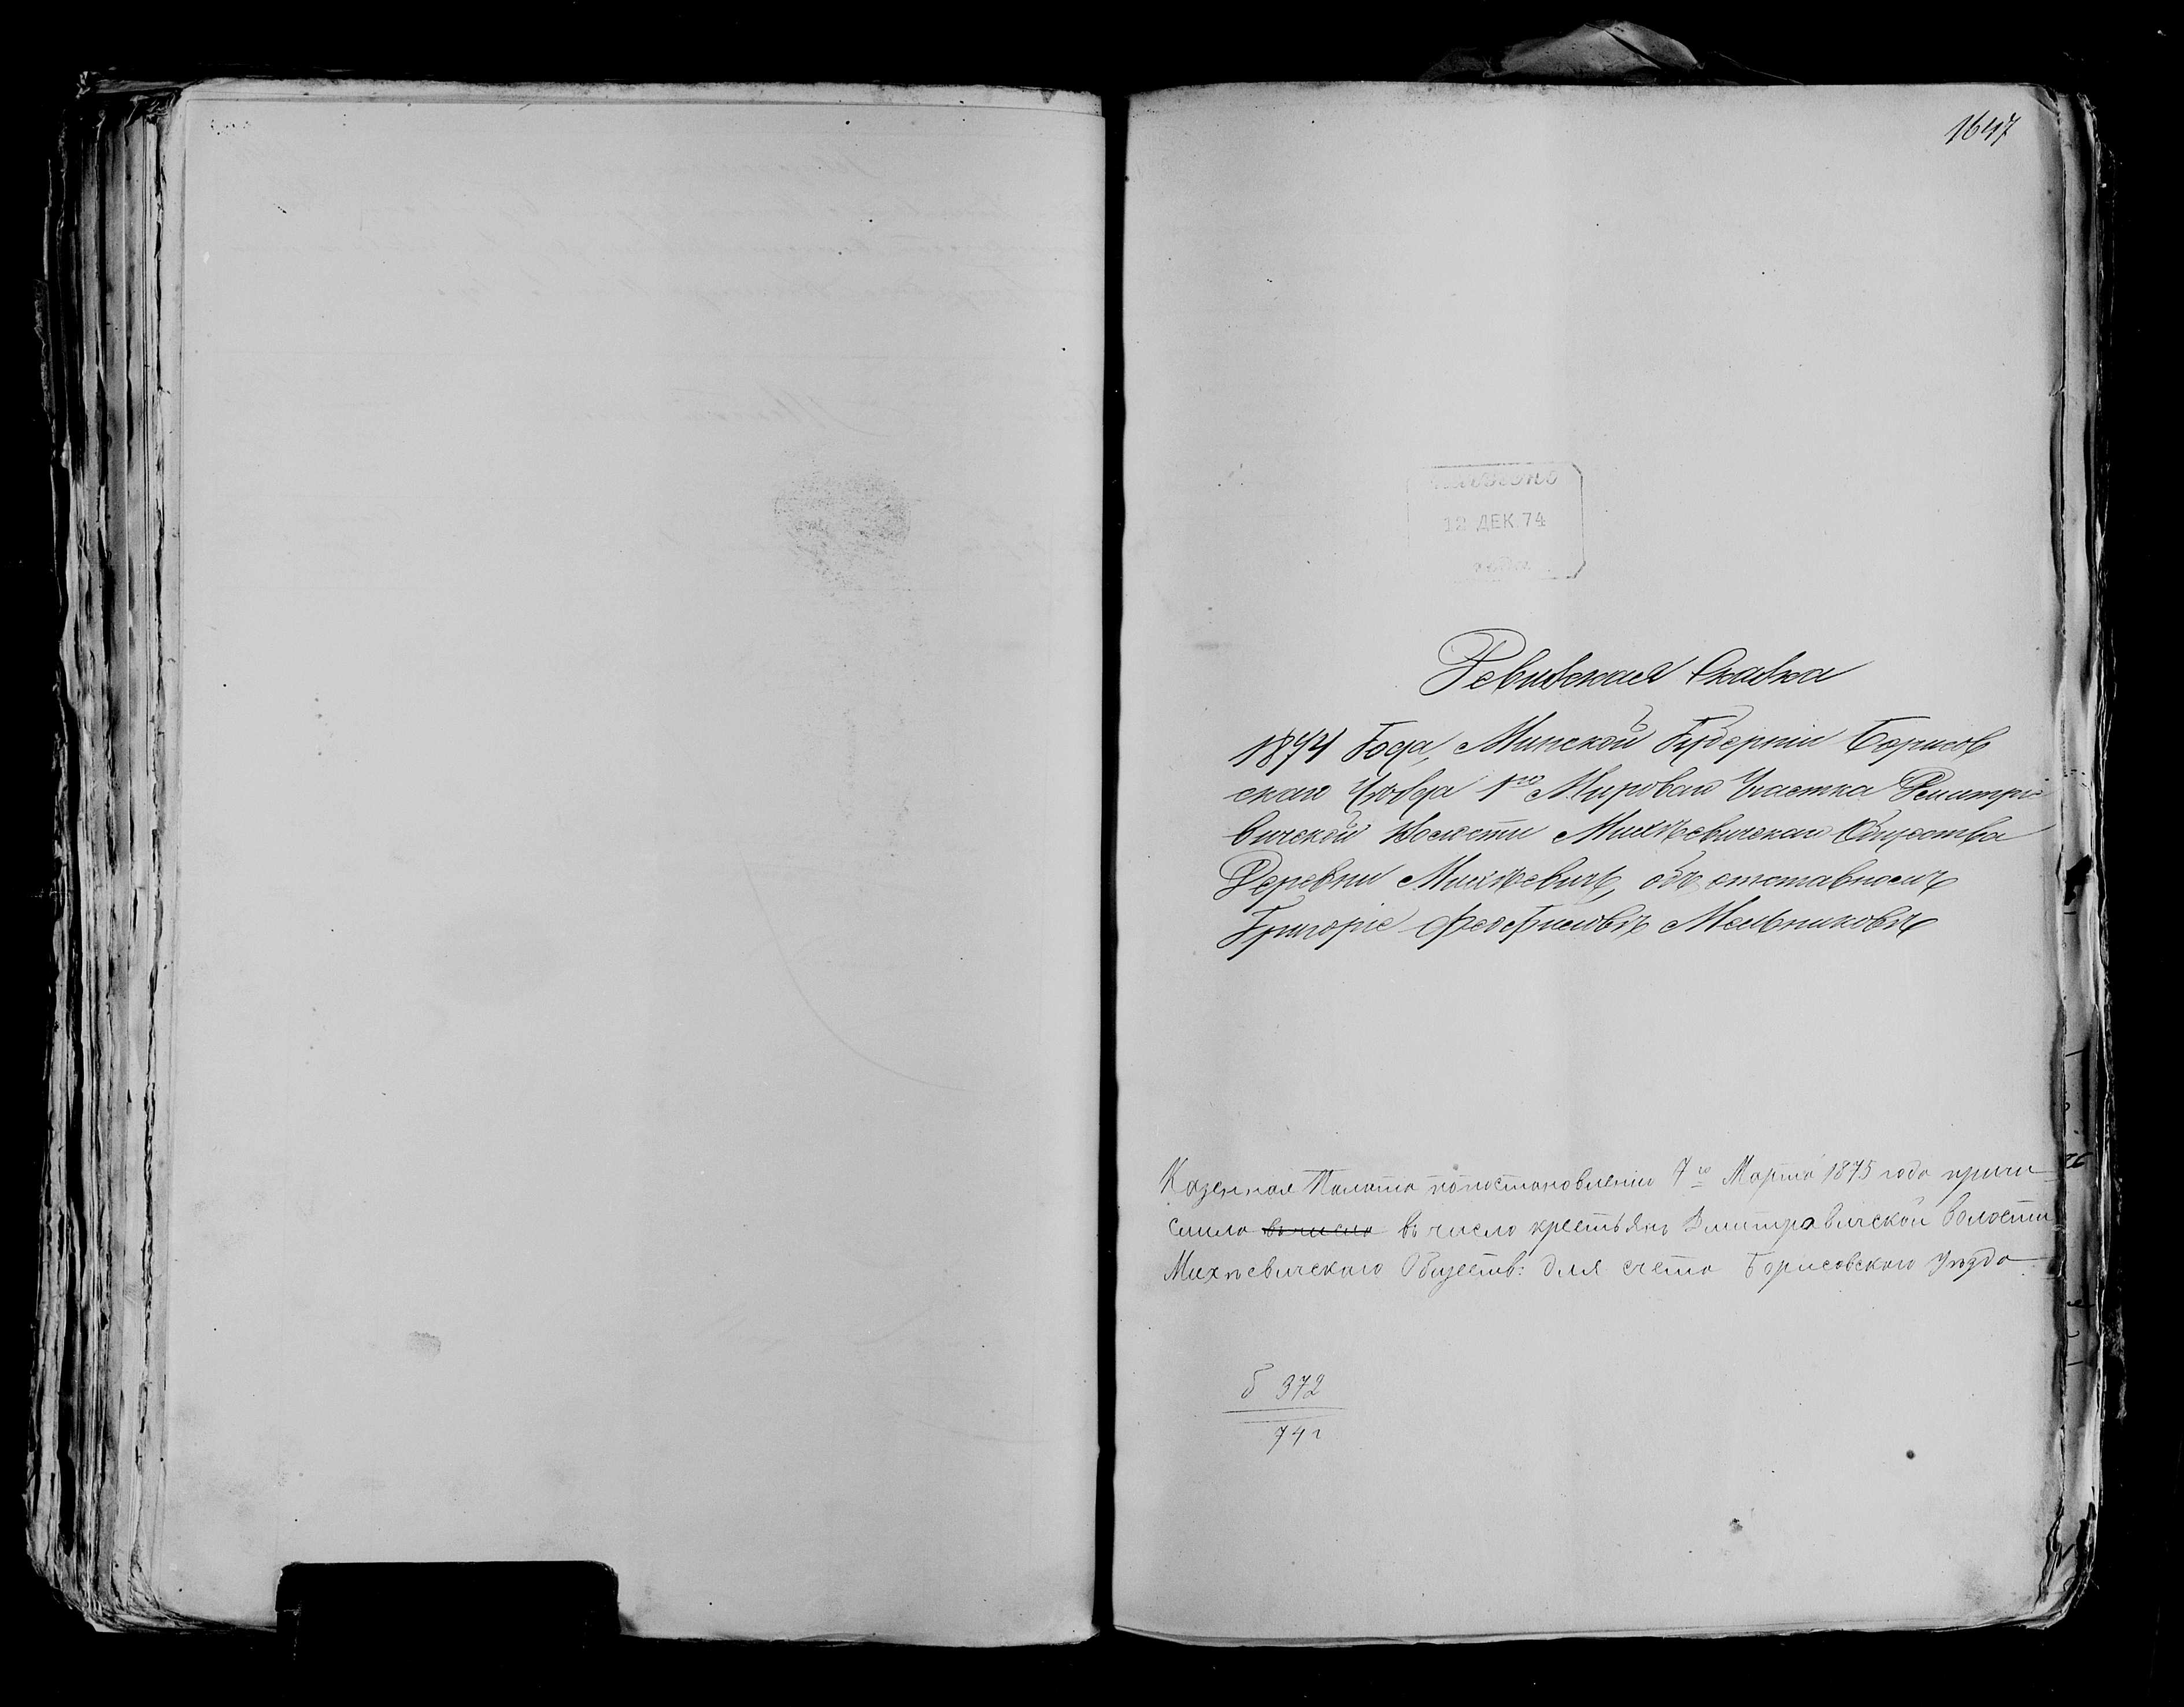 1647
12 ДЕК. 74
Ревизская Сказка
1874 Года, Минской Губерніи Борисов
скаго Уѣзда 1го Мироваго Участка Дмитри
вичской Волости Михѣевичскаго Общества
Деревни Михѣевичъ, объ отставномъ
Григоріе Феофиловѣ Мельниковѣ
Казенная Палата по постановленію 7го Марта 1875 года причи
слила в число въ число крестьянъ Дмитравичской волости
Михѣевичскаго Обществ: для счета Борисовскаго Уѣзда
б 372
74 г